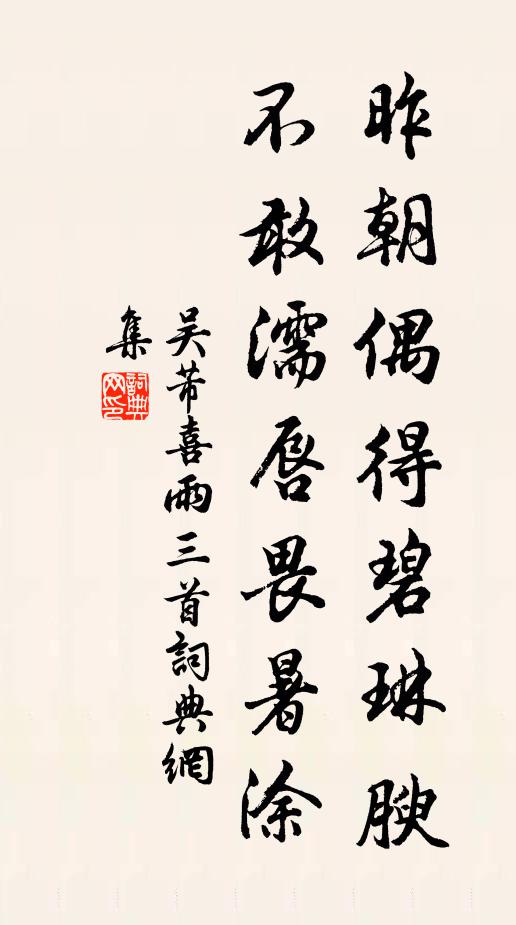 昨朝偶得碧琳腴
不敢濡唇畏暑涂
吴芾喜雨三首詞典網
集
詞典网印